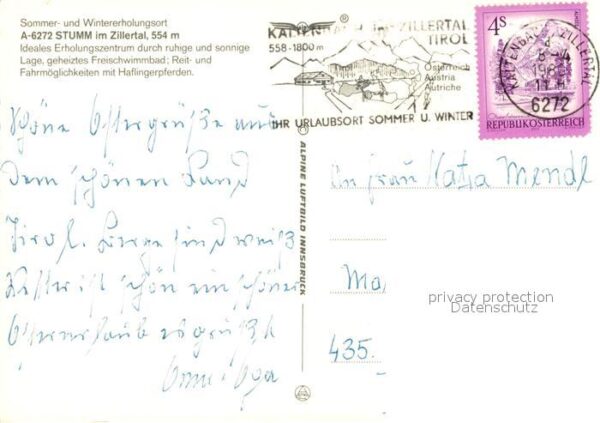 Sommer- und Wintererholungsort
A-6272 STUMM im Zillertal, 554 m
Ideales Erholungszentrum durch ruhige und sonnige
Lage, geheiztes Freischwimmbad; Reit- und
Fahrmöglichkeiten mit Haflingerpferden.
KALTENBACH IM ZILLERTAL
TIROL
558-1800 m
Österreich
Austria
Autriche
IHR URLAUBSORT SOMMER U. WINTER
KALTENBACH ZILLERTAL
6272
4S
REPUBLIK ÖSTERREICH
Schöne Ostergrüße aus
dem schönen Land
Tirol. sind weiß
ist schön ein schöner
Osterurlaub es grüßt
ALPINE LUFTBILD INNSBRUCK
An Frau Katja Mendl
Ma
435.
privacy protection
Datenschutz